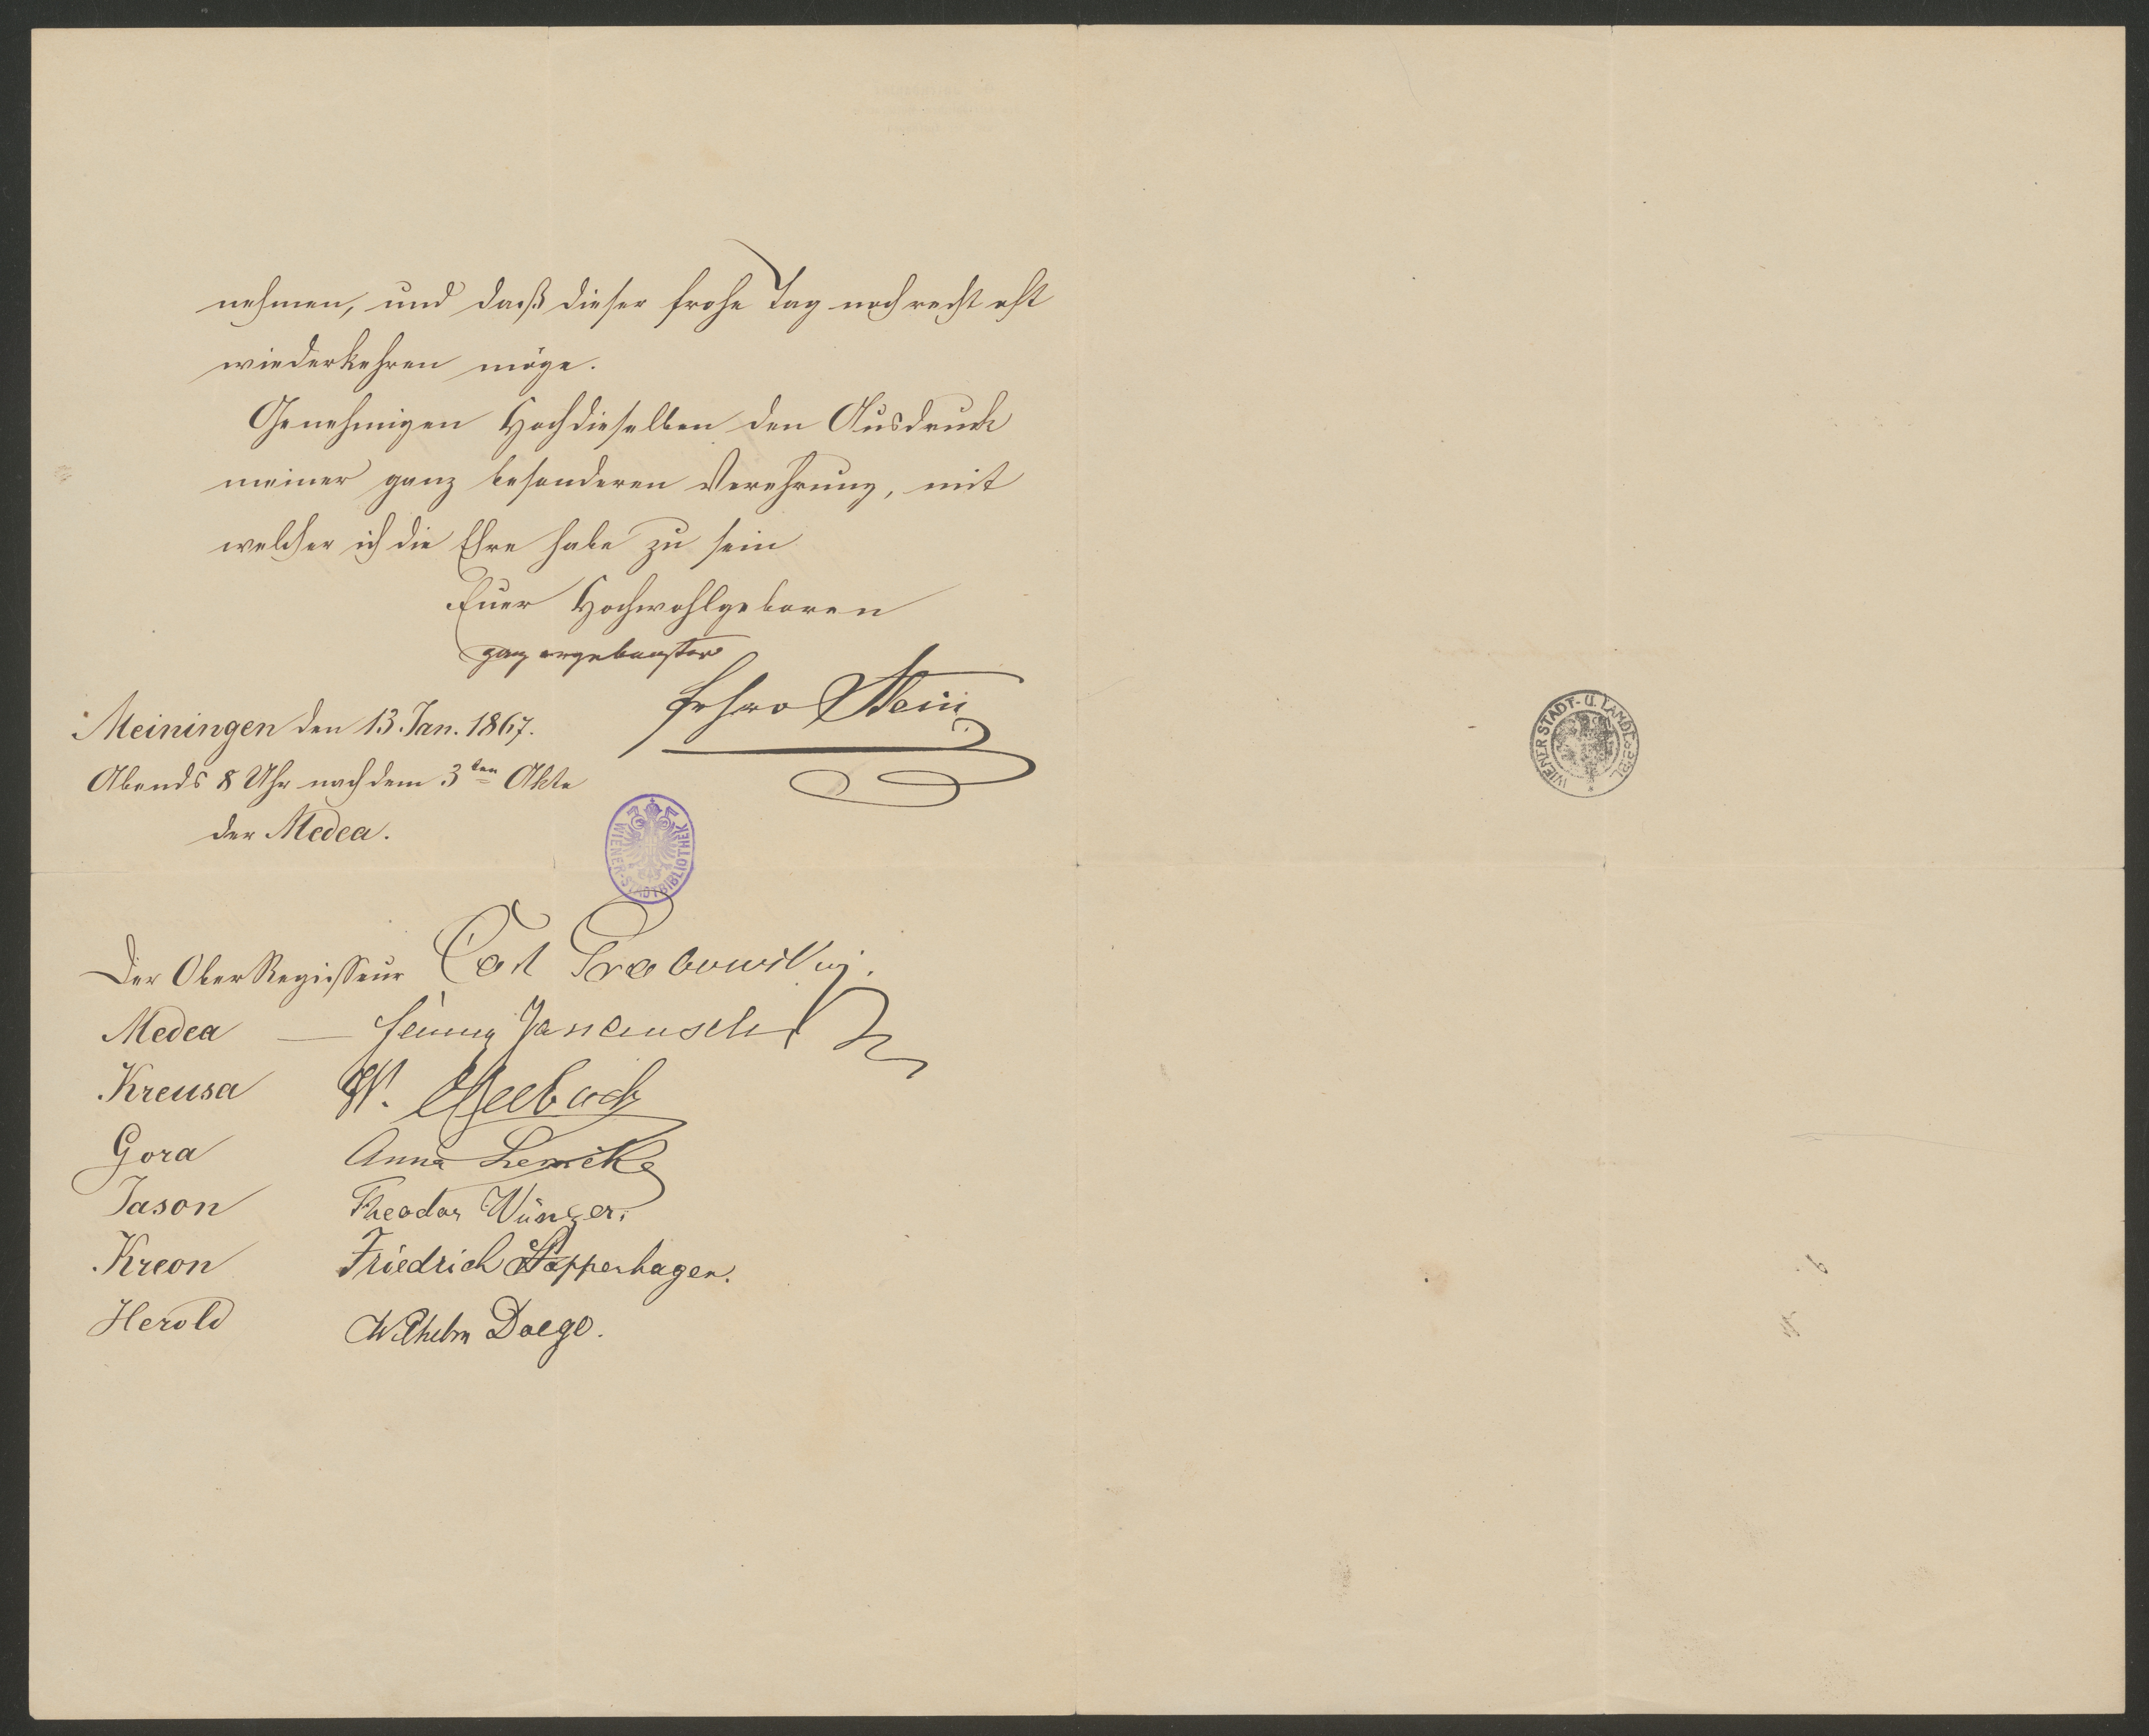 nehmen, und daß dieser frohe Tag noch recht oft
wiederkehren möge.
Genehmigen Hochdieselben den Ausdruck
meiner ganz besonderen Verehrung, mit
welcher ich die Ehre habe zu sein
Euer Hochwohlgeboren
ganz ergebenster
Stein
Meiningen den 13. Jan. 1867.
Abends 8 Uhr nach dem 3ten Akte
der Medea.
WIENER-STADTBIBLIOTHEK
Der OberRegisseur Carl Grabowsky.
Medea — Jenny
Kreusa W.
Gora Anna Lemcke
Jason Theodor Wünzer.
Kreon Friedrich Stoppenhagen.
Herold Wilhelm Doege.
WIENER STADT- U. LANDESBIBL.